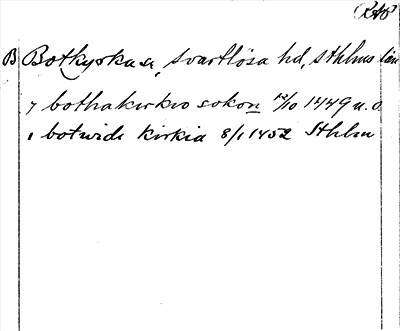 RAP
B Botkyrka sn, Svartlösa hd, Sthlms län
7 bothakirkio sokon 12/10 1449 u. o.
i botwids kirkia 8/1 1452 Sthlm